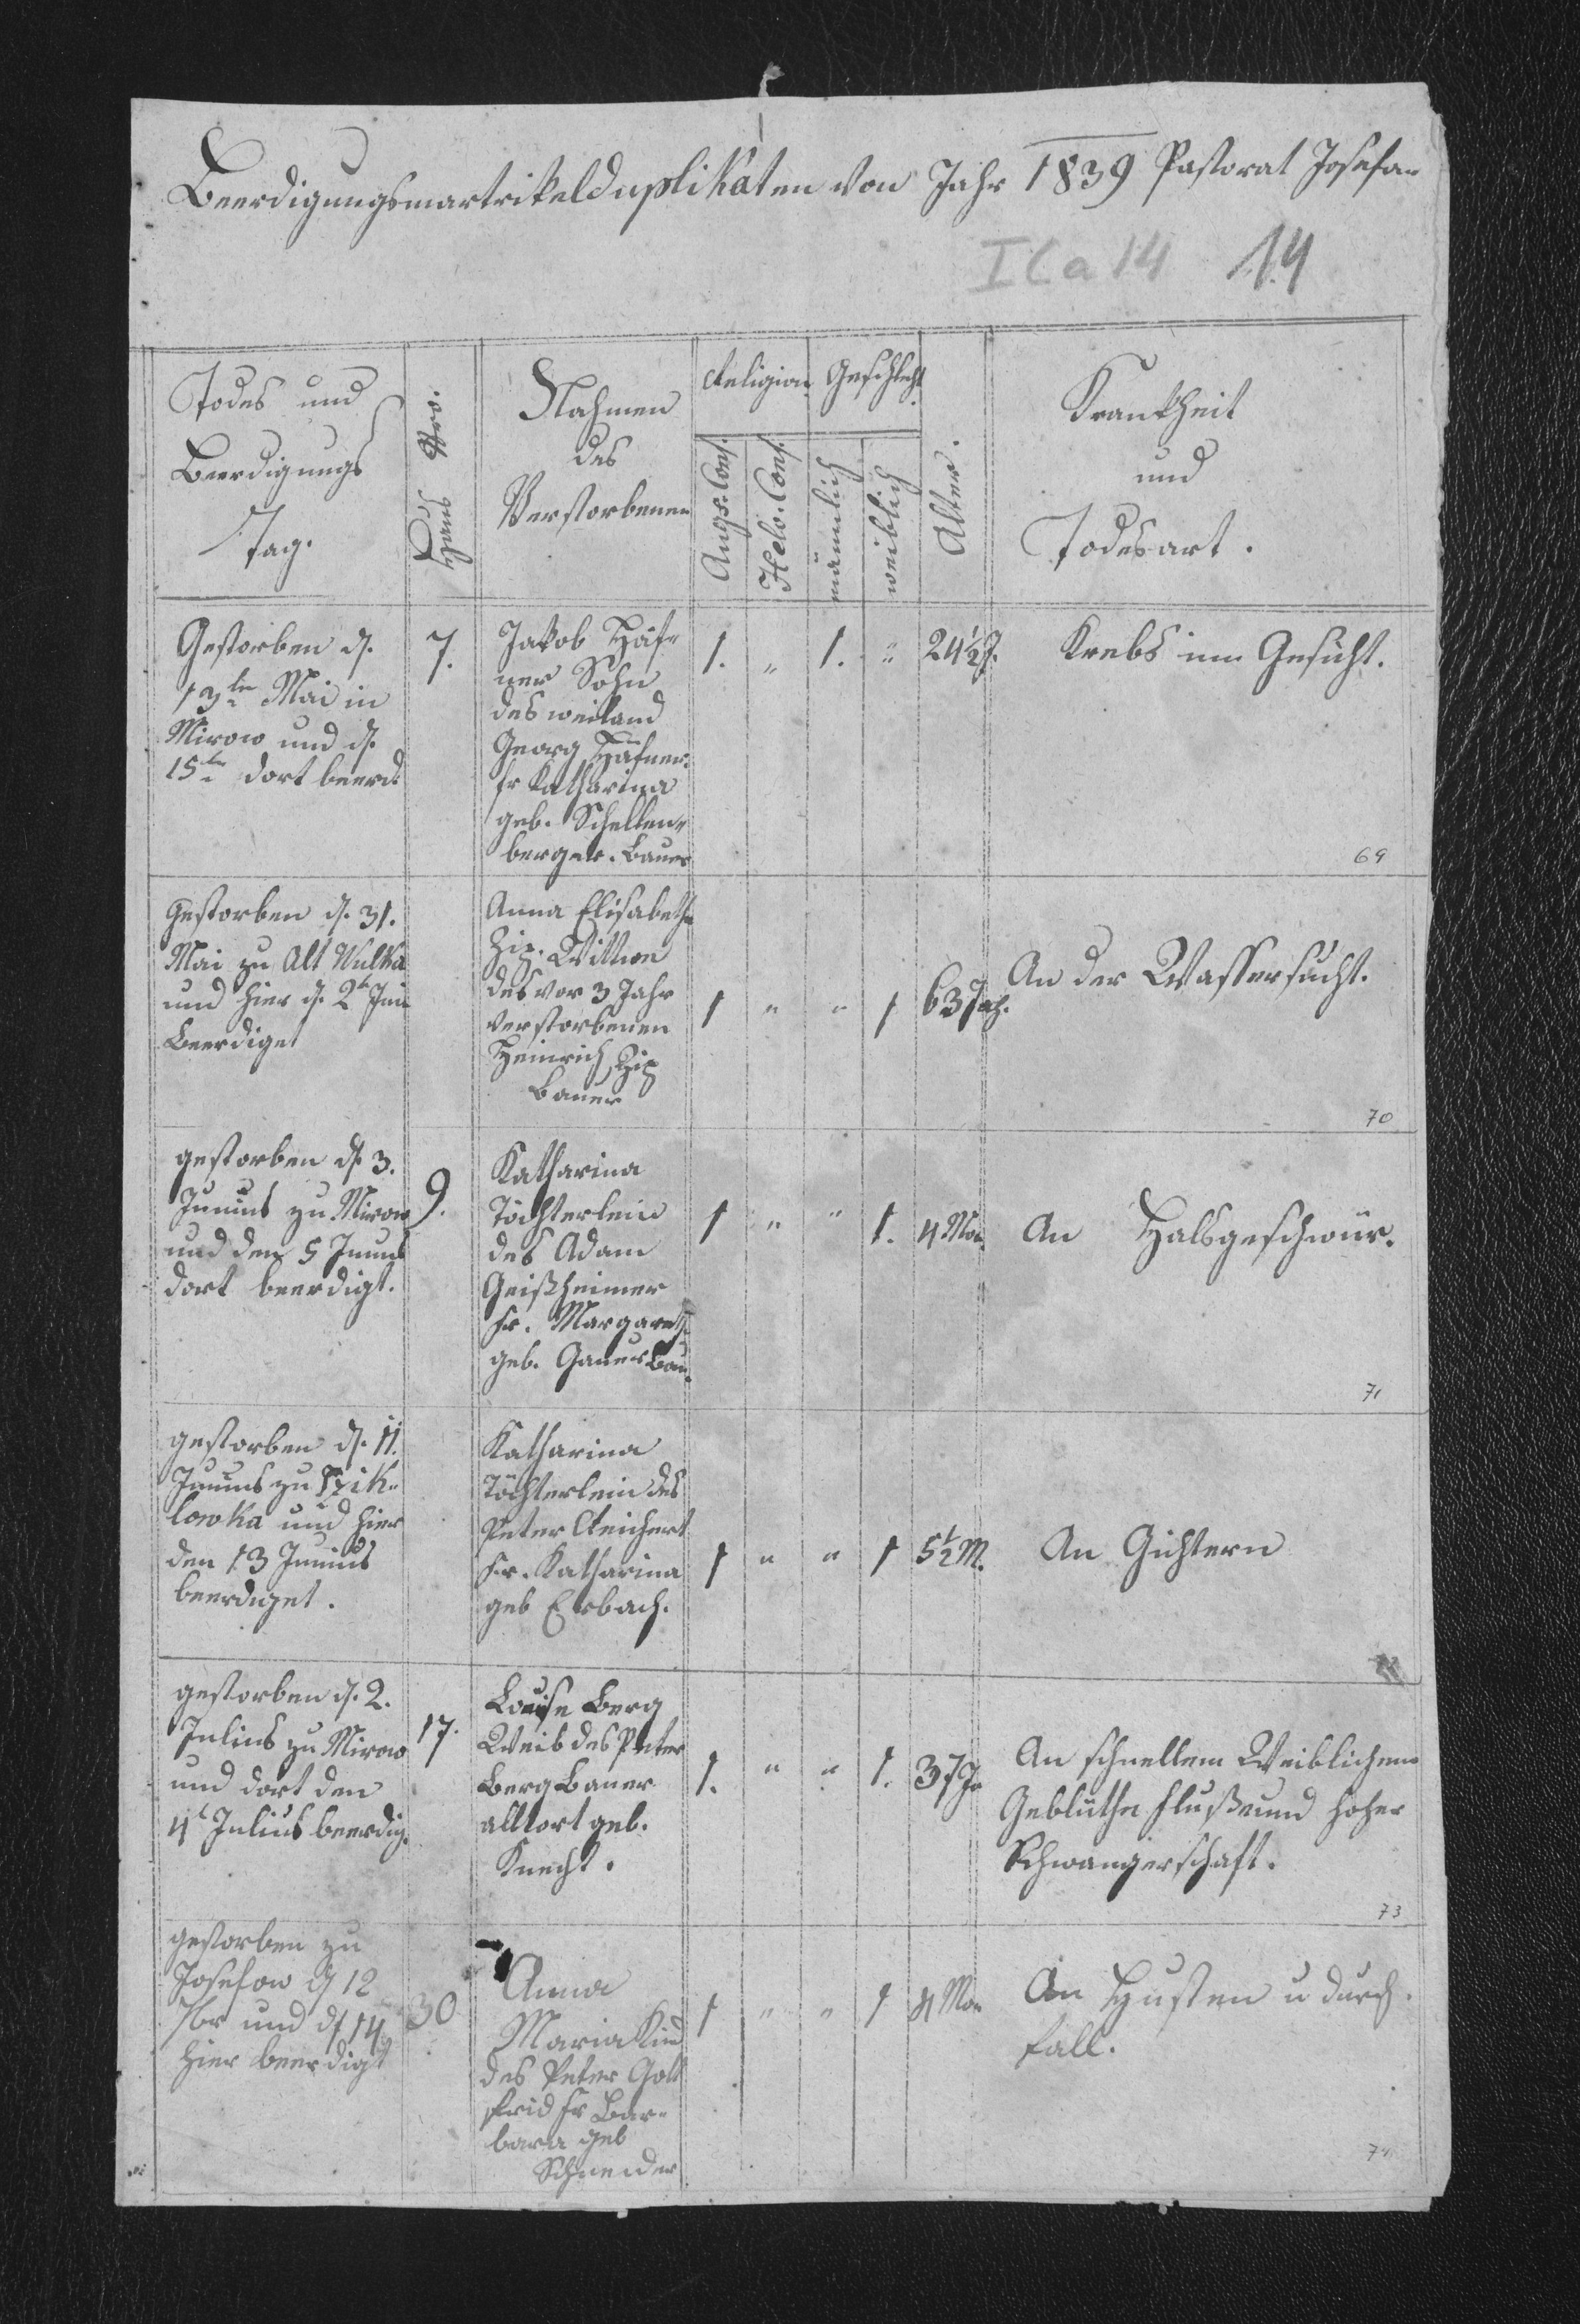 Beerdigungsmartrikelduplikaten von Jahr 1839 Pastorat Josefow
ICa14 14
Todes und
Beerdigungs
Tag.
Haus Nro.
Nahmen
des
Verstorbenen
Religion
Augs. Conf.
Helv. Conf.
Geschlecht
männlich
weiblich
Alter.
Krankheit
und
Todesart.
Gestorben d.
13ten Mai in
Mirow und d.
15ten dort beerd.
7.
Jakob Häf-
ner Sohn
des weiland
Georg Häfner.
fr Katharina
geb. Schellen-
berger. Bauer
1. " 1. " 24½J.
Krebs im Gesicht.
69
Gestorben d. 31.
Mai zu Alt Wulka
und hier d. 2t Jun
Beerdiget
Anna Elisabetha
Zip. Wittwe
des vor 3 Jahr
verstorbenen
Heinrich Zip
Bauer
1 " " 1 63 Jah.
An der Wassersucht.
70
gestorben d. 3.
Junius zu Mirow
und den 5 Junius
dort beerdigt.
9.
Katharina
Töchterlein
des Adam
Geißheimer
fr. Margareth.
geb. Gauer Bau.
1 " " 1. 4 Mon.
An Halsgeschwür.
71
gestorben d. 11.
Junius zu
lowka und hier
den 13 Junius
beerdiget.
Katharina
Töchterlein des
Peter Reichert
fr. Katharina
geb Erbach.
1 " " 1 5½ M.
An Gichtern
gestorben d. 2.
Julius zu Mirow
und dort den
4t Julius beerdig.
17.
Louise Berg
Weib des Peter
Berg Bauer
alldort geb.
Knecht.
1. " " 1. 37 Ja
An schnellem Weiblichem
Geblüthe Fluß und hoher
Schwangerschaft.
73
gestorben zu
Josefow d 12
7br und d 14
hier beerdigt
30
Anna
Maria Kind
des Peter Gott
frid fr Bar-
bara geb
Schneider
1 " " 1 4 Mon
An Husten u durch-
fall.
74